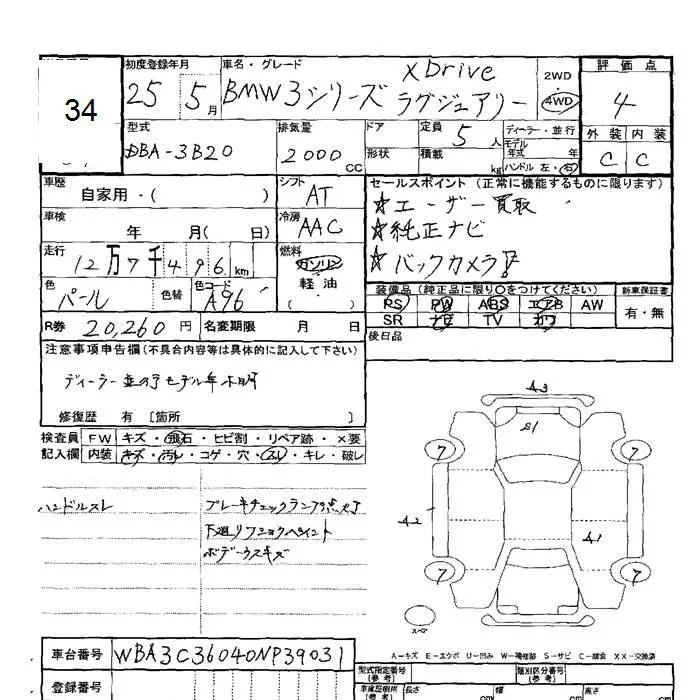 34
初度登録年月
25 5月
車名・グレード
xDrive
BMW3シリーズ ラグジュアリー
2WD
4WD
評価点
4
外装 内装
C C
型式
DBA-3B20
排気量
2000 CC
ドア
形状
定員 5人
積載 kg
ディーラー・並行
モデル年式 年
ハンドル 左・右
車歴
自家用・( )
シフト
AT
セールスポイント (正常に機能するものに限ります)
☆ユーザー買取
☆純正ナビ
☆バックカメラ!
車検
年 月( 日)
冷房
AAC
走行
12万7千496km
燃料
ガソリン
軽・油
( )
色
パール
色替
色コード
A96
装備品 (純正品に限り○をつけてください)
新車保証書
PS PW ABS エアB AW
SR ナビ TV カワ
有・無
R券 20,260円 名変期限 月 日
後日品
注意事項申告欄(不具合内容等は具体的に記入して下さい)
ディーラー並の子モデル年不明
修復歴 有 [箇所 ]
検査員 FW キズ・飛石・ヒビ割・リペア跡・×要
記入欄 内装 キズ・汚レ・コゲ・穴・スレ・キレ・破レ
ハンドルスレ
ブレーキチェックランプ点灯
下廻リフショクペイント
ボデーウスキズ
A3
S1
7 7
A2
A1
7 7
スペア
A-キズ E-エクボ U-凹み W-補修跡 S-サビ C-腐食 XX-交換済
車台番号 WBA3C36040NP39031
登録番号
型式指定番号
(参考)
類別区分番号
(参考)
長さ cm
幅 cm
高さ cm